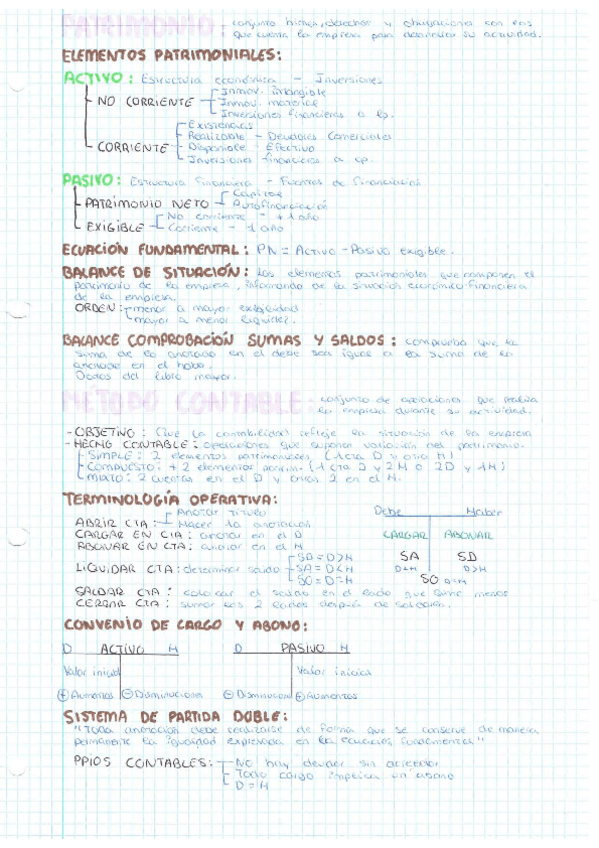 PATRIMONIO: conjunto bienes, derechos y obligaciones con los
que cuenta la empresa para desarrollar su actividad.
ELEMENTOS PATRIMONIALES:
ACTIVO: Estructura económica - Inversiones
NO CORRIENTE
Inmov. intangible
Inmov. material
Inversiones financieras a lp.
CORRIENTE
Existencias
Realizable - Deudores Comerciales
Disponible - Efectivo
Inversiones financieras a cp.
PASIVO: Estructura Financiera - Fuentes de financiación
PATRIMONIO NETO
Capital
Autofinanciación
EXIGIBLE
No corriente - +1 año
Corriente - 1 año
ECUACIÓN FUNDAMENTAL: PN = Activo - Pasivo exigible.
BALANCE DE SITUACIÓN: los elementos patrimoniales que componen el
patrimonio de la empresa, informando de la situación económico-financiera
de la empresa.
ORDEN: menor a mayor exigibilidad
mayor a menor liquidez.
BALANCE COMPROBACIÓN SUMAS Y SALDOS: comprueba que la
suma de lo anotado en el debe sea igual a la suma de lo
anotado en el haber.
Datos del libro mayor.
MÉTODO CONTABLE: conjunto de operaciones que realiza
la empresa durante su actividad.
- OBJETIVO: Que la contabilidad refleje la situación de la empresa
- HECHO CONTABLE: operaciones que suponen variación del patrimonio.
SIMPLE: 2 elementos patrimoniales (1 cta D y otra H)
COMPUESTO: +2 elementos patrim. (1 cta D y 2 H o 2D y 1H)
MIXTO: 2 cuentas en el D y otras 2 en el H.
TERMINOLOGÍA OPERATIVA:
ABRIR CTA:
Anotar título
Hacer 1a anotación
CARGAR EN CTA: anotar en el D
ABONAR EN CTA: anotar en el H
LIQUIDAR CTA: determinar saldo
SD = D>H
SA = D<H
SO = D=H
SALDAR CTA: colocar el saldo en el lado que sume menos
CERRAR CTA: sumar los 2 lados después de saldarla.
Debe Haber
CARGAR ABONAR
SA SD
D<H D>H
SO D=H
CONVENIO DE CARGO Y ABONO:
D ACTIVO H D PASIVO H
Valor inicial Valor inicial
+ Aumentos - Disminuciones - Disminución + Aumentos
SISTEMA DE PARTIDA DOBLE:
"Toda anotación debe realizarse de forma que se conserve de manera
permanente la igualdad expresada en la ecuación fundamental"
PPIOS CONTABLES:
No hay deudor sin acreedor
Todo cargo implica un abono
D = H